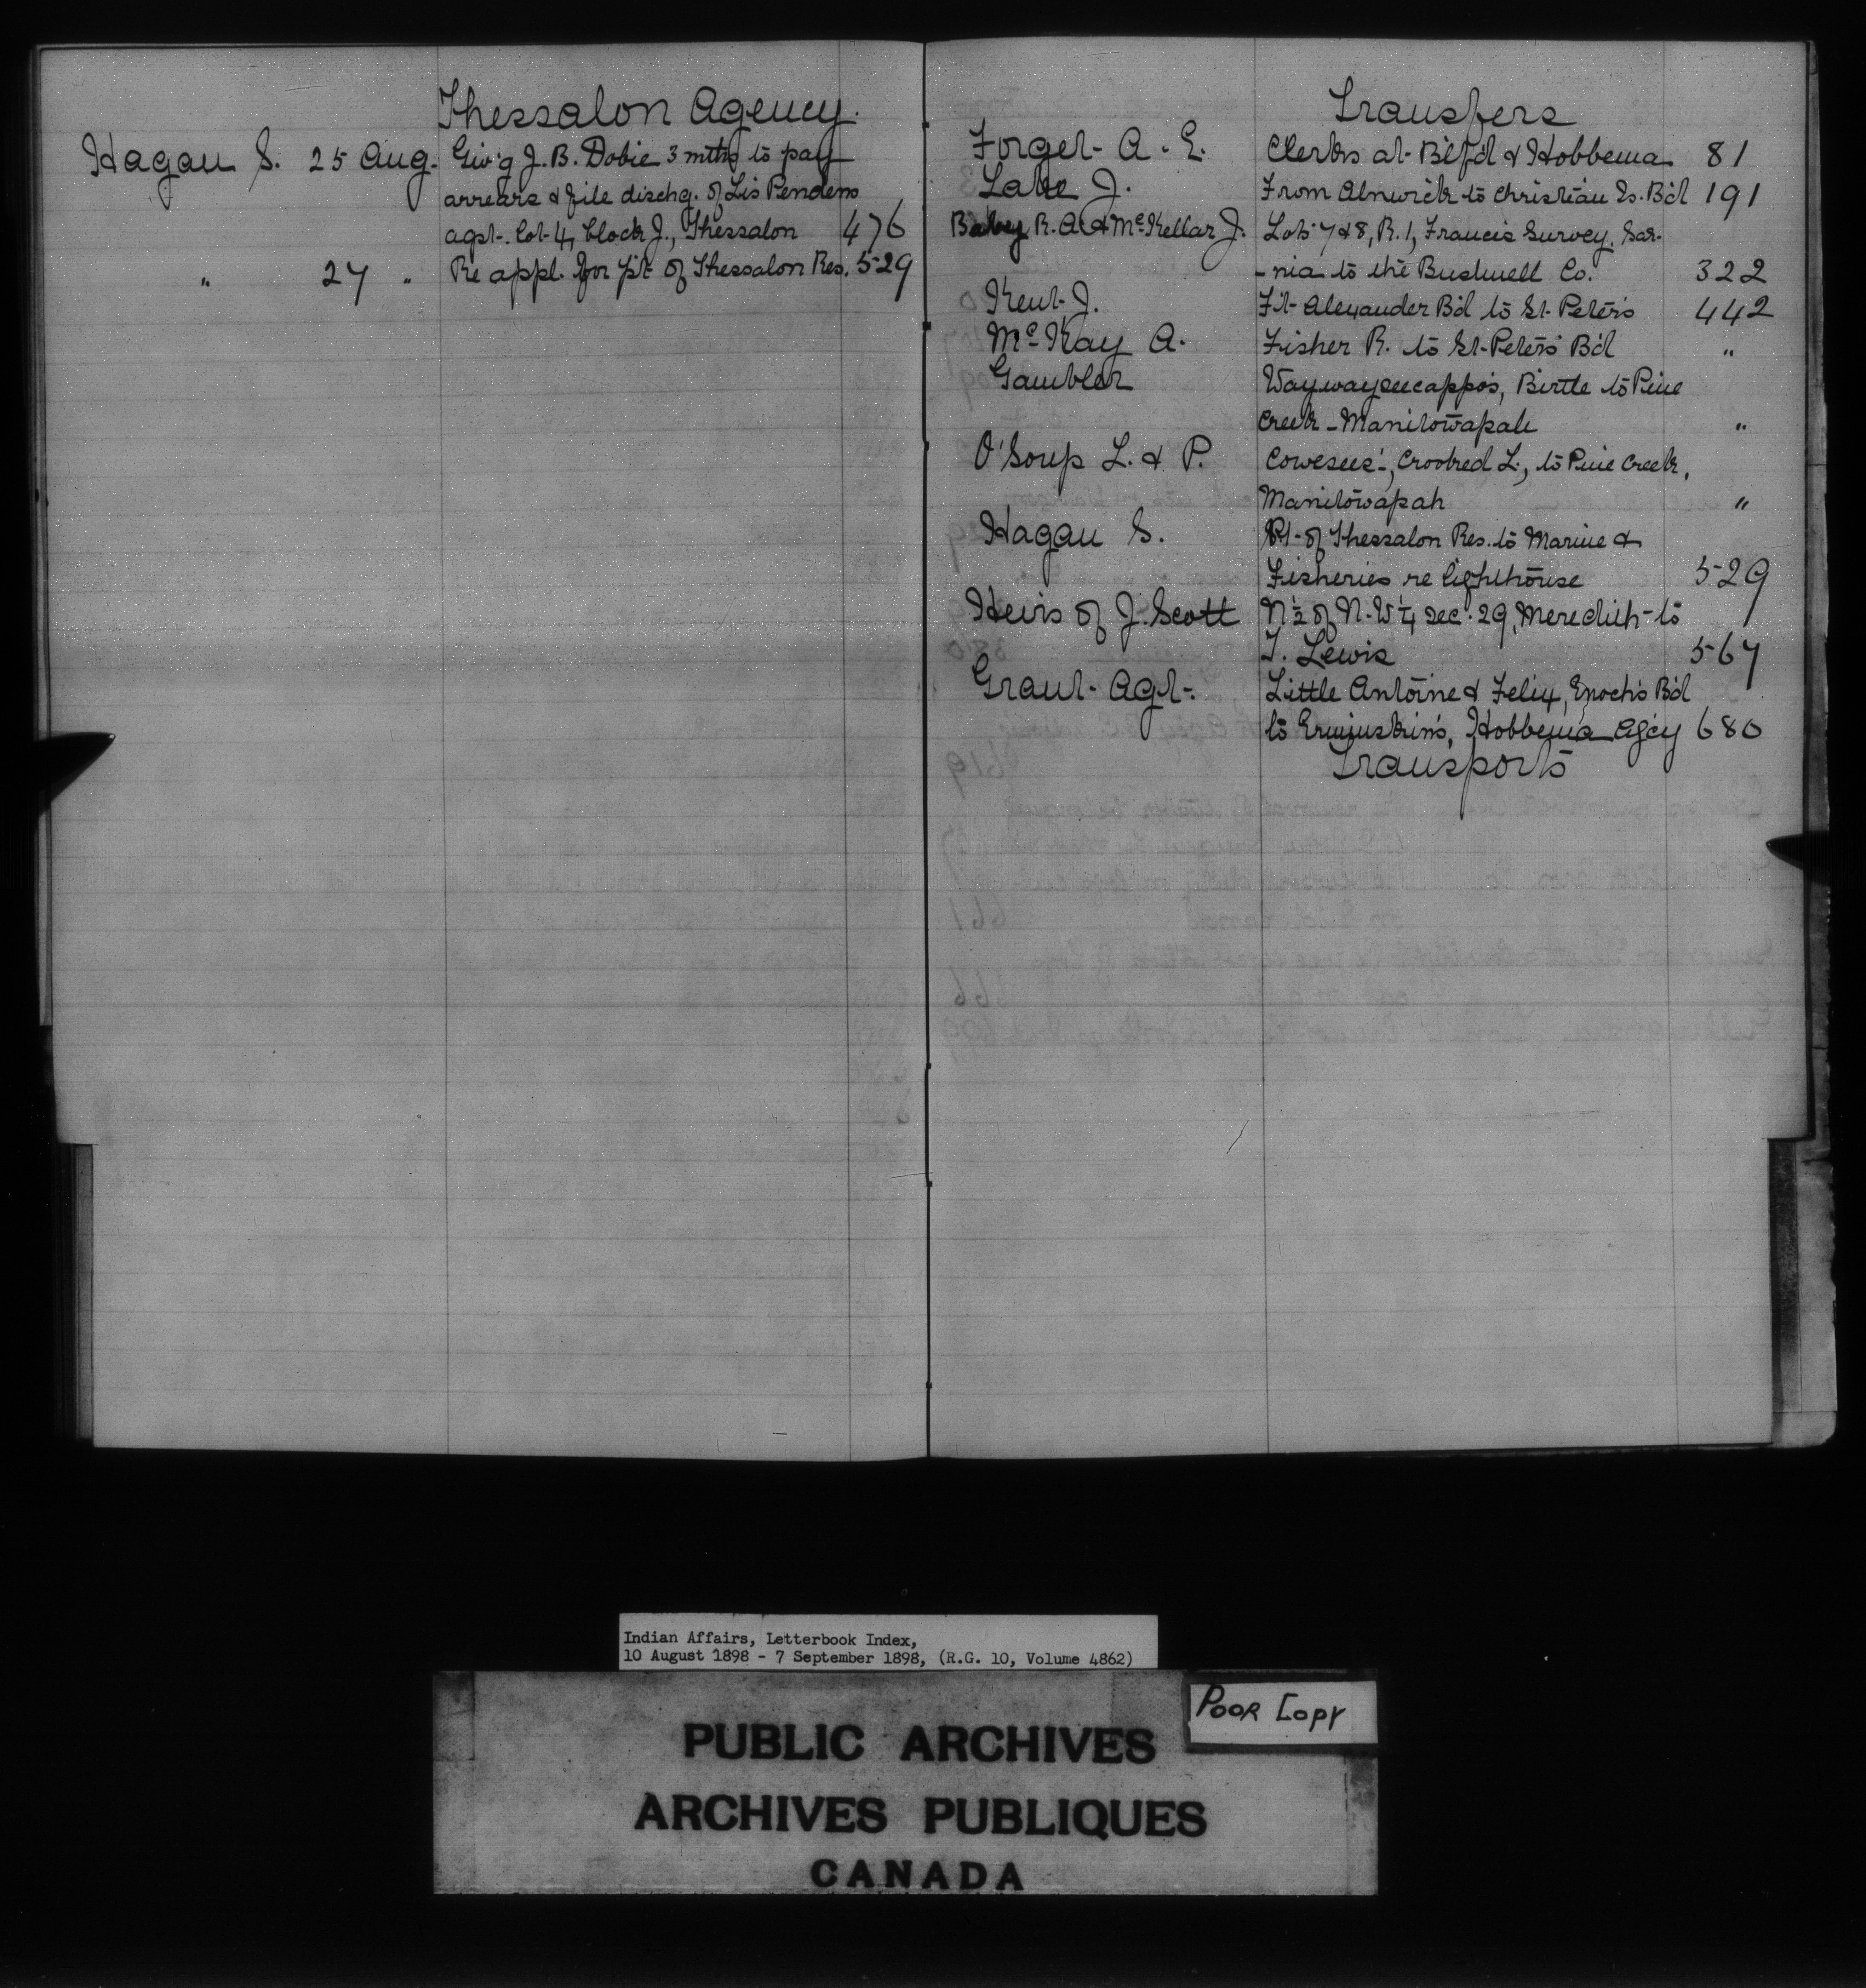 Thessalon Agency.
Hagan S. 25 Aug. Giv'g J. B. Dobie 3 mths to pay
arrears & file dischg. of Lis Pendens
agst. lot 4, block J., Thessalon 476
" 27 " Re appl. for pt of Thessalon Res. 529
Transfers
Forget A. E. Clerks at Btlf'd & Hobbema 81
Lake J. From Alnwick to Christian Is. B'd 191
Baby R. A. & McKellar J. Lots 7 & 8, R. 1, Francis Survey, Sar-
-nia to the Bushnell Co. 322
Kent J. Ft Alexander B'd to St. Peter's 442
McKay A. Fisher R. to St. Peter's B'd "
Gambler Waywayseecappo's, Birtle to Pine
Creek - Manitowapah "
O'Soup L. & P. Cowesess', Crooked L., to Pine Creek,
Manitowapah "
Hagan S. Pt. of Thessalon Res. to Marine &
Fisheries re lighthouse 529
Heirs of J. Scott N ½ of N. W ¼ sec. 29, Meredith to
T. Lewis 567
Grant Agt. Little Antoine & Felix, Enoch's B'd
to Ermijuskin's, Hobbema Ag'cy 680
Transports
Indian Affairs, Letterbook Index,
10 August 1898 - 7 September 1898, (R.G. 10, Volume 4862)
POOR COPY
PUBLIC ARCHIVES
ARCHIVES PUBLIQUES
CANADA